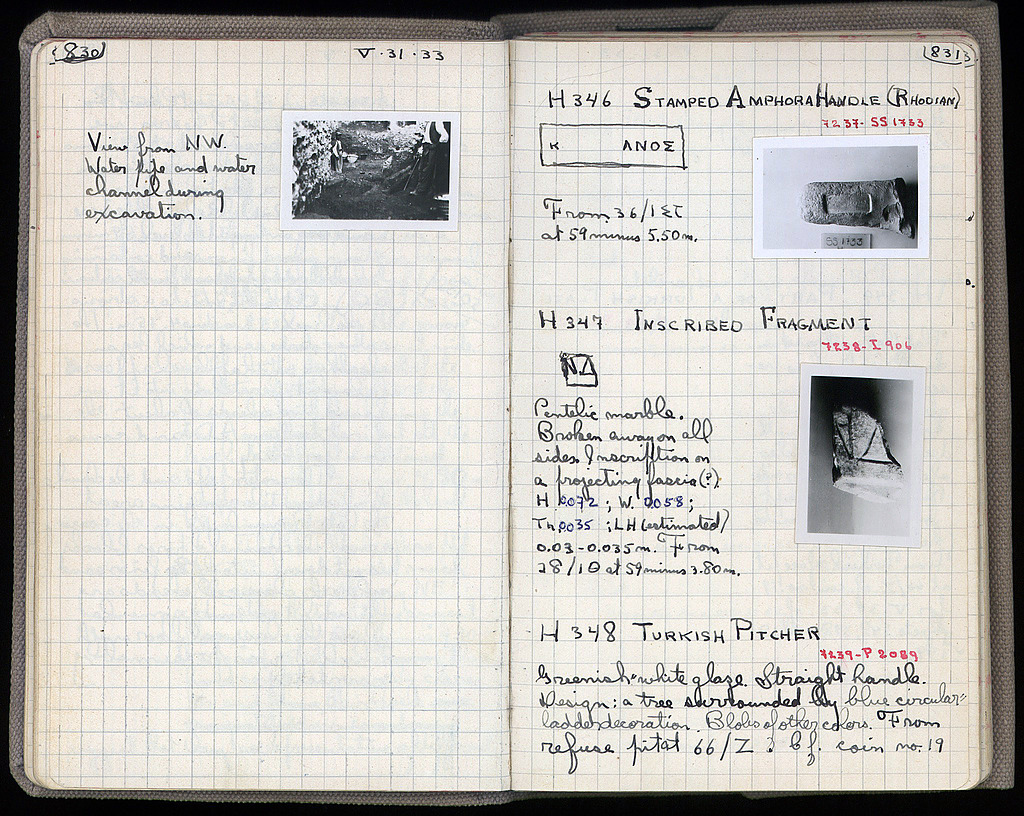 830
V·31·33
View from NW.
Water pipe and water
channel during
excavation.
831
H 346 STAMPED AMPHORA HANDLE (RHODIAN)
7237-SS 1733
Κ ΛΝΟΣ
From 36/ΙΣΤ
at 59 minus 5.50m.
SS 1733
H 347 INSCRIBED FRAGMENT
7238-I 906
ΝΔ
Pentelic marble.
Broken away on all
sides. Inscription on
a projecting fascia(?).
H. 0.072; W. 0.058;
Th. 0.035; LH (estimated)
0.03-0.035m. From
28/ΙΘ at 59 minus 3.80m.
H 348 TURKISH PITCHER
7239-P 2089
Greenish-white glaze. Straight handle.
Design: a tree surrounded by blue circular
ladder decoration. Blobs of other colors. From
refuse pit at 66/Ζ Cf. coin no. 19